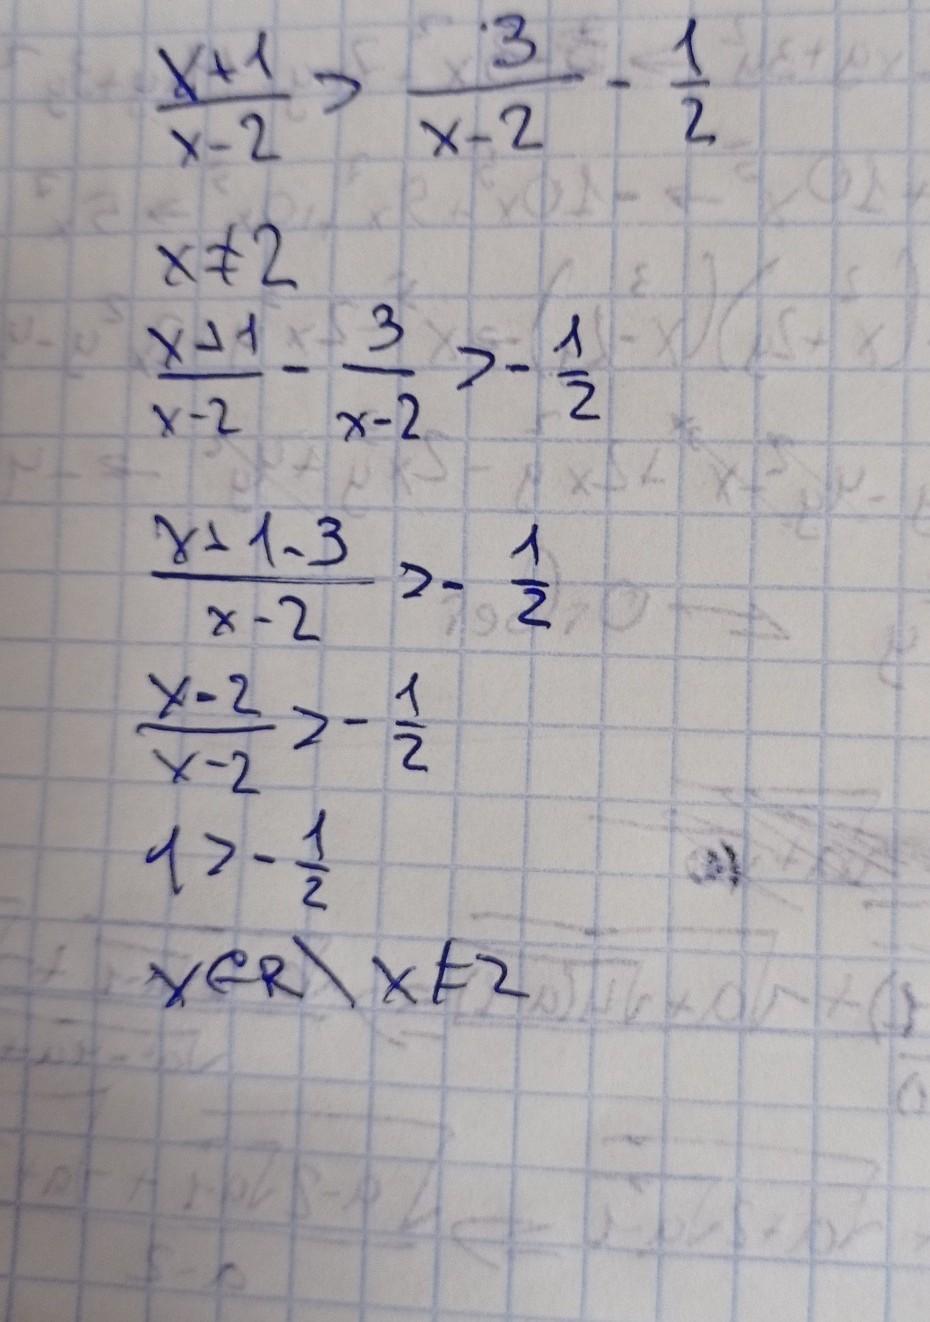 x+1/x-2 > 3/x-2 - 1/2
x≠2
x+1/x-2 - 3/x-2 > - 1/2
x+1-3/x-2 > - 1/2
x-2/x-2 > - 1/2
1 > - 1/2
x∈R\ x≠2